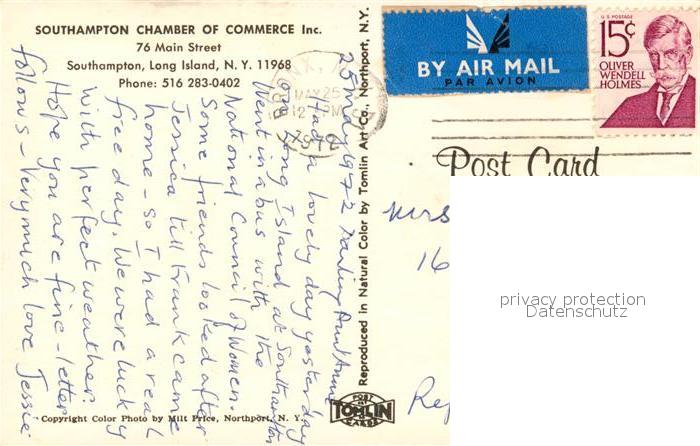 SOUTHAMPTON CHAMBER OF COMMERCE Inc.
76 Main Street
Southampton, Long Island, N. Y. 11968
Phone: 516 283-0402
25 May 1972 Darling Aunt Anne
Had a lovely day yesterday
on Long Island at Southampton
Went in a bus with the
National Council of Women.
Some friends looked after
Jessica till Frank came
home - so I had a real
free day. We were lucky
with perfect weather.
Hope you are fine - letter
follows - Very much love Jessie
Copyright Color Photo by Milt Price, Northport, N. Y.
Reproduced in Natural Color by Tomlin Art Co., Northport, N.Y.
POST
TOMLIN
CARDS
BRONX, N.Y.
MAY 25
12 PM
1972
BY AIR MAIL
PAR AVION
U.S. POSTAGE
15¢
OLIVER
WENDELL
HOLMES
Post Card
Mrs
16
Rep
privacy protection
Datenschutz